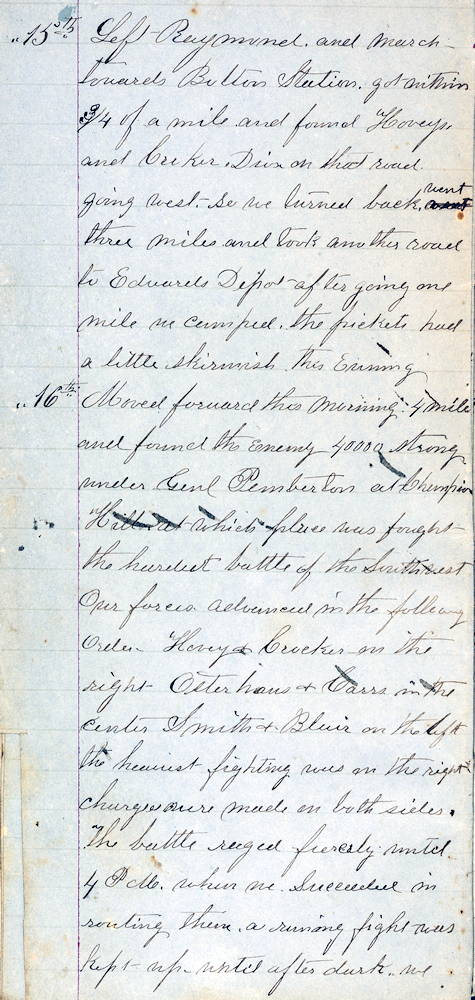 " 15th Left Raymond. and march-
towards Bolton Station. got within
3/4 of a mile and found Hoveys
and Croker. Divs on that road.
going west- so we turned back. went
three miles and took another road
to Edwards Depot- after going one
mile we camped. the pickets had
a little skirmish. this Evening
" 16th Moved forward this morning. 4 mile
and found the Enemy 40000 strong
under Genl Pemberton at Champion
Hill. at which place was fought
the hardest battle of the Southwest
Our forces advanced in the following
order- Hovey & Crocker on the
right- Osterhaus & Carrs in the
center Smith & Blair on the left
the heaviest fighting was on the right
charges were made on both sides.
The battle raged fiercely until
4 P.M. when we. Succeeded in
routing them. a running fight was
kept up- until after dark. we